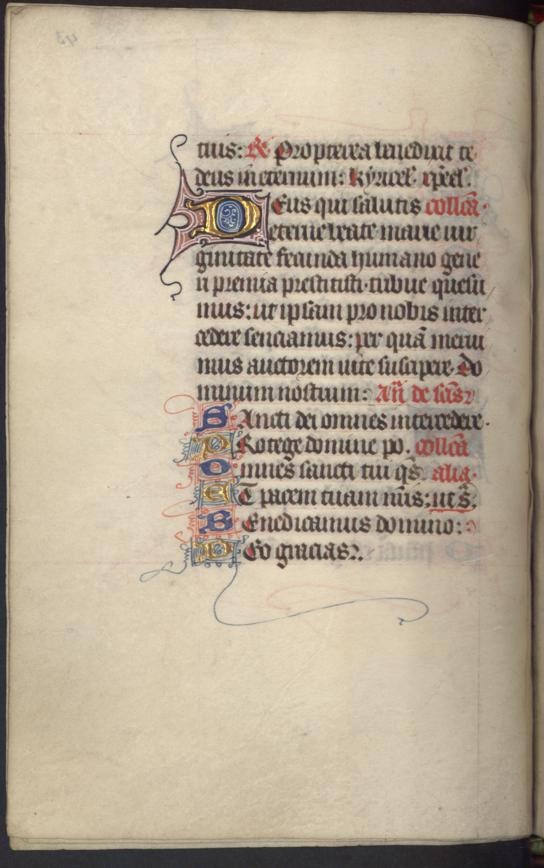 tuis: R. Propterea benedixit te
deus in eternum: kyriel. xp̄eel.
Deus qui salutis collc̄a.
eterne beate marie vir
ginitate fecunda humano gene
ri premia prestitisti. tribue quesu
mus: ut ipsam pro nobis inter
cedere senciamus: per quā meru
mus auctorem vite suscipere. Do
minum nostrum: An̄. de sc̄is
Sancti dei omnes intercedere.
Protege domine po. collc̄a
Omnes sancti tui qs̄. alia.
Et pacem tuam nr̄is: ut s̄.
Benedicamus domino:
Deo gracias.